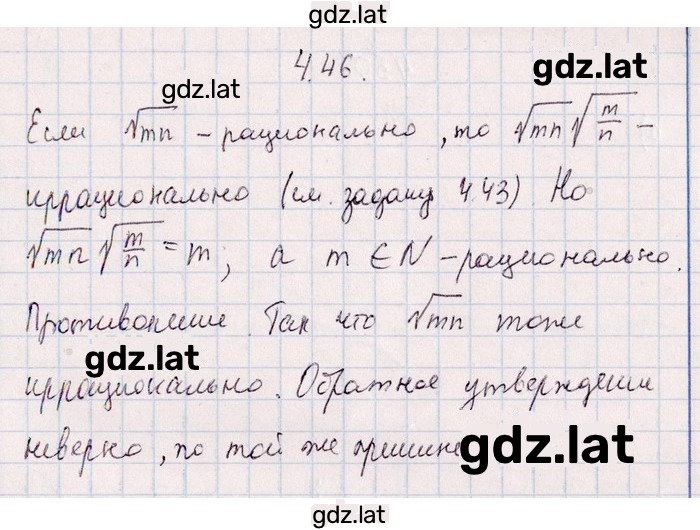 gdz.lat
4.46.
gdz.lat
gdz.lat
Если √mn - рационально, то √mn √m/n -
иррационально (см. задачу 4.43) Но
√mn √m/n = m; а m ∈ N - рационально.
Противоречие. Так что √mn тоже
gdz.lat
иррационально. Обратное утверждение
неверно, по той же причине
gdz.lat
gdz.lat